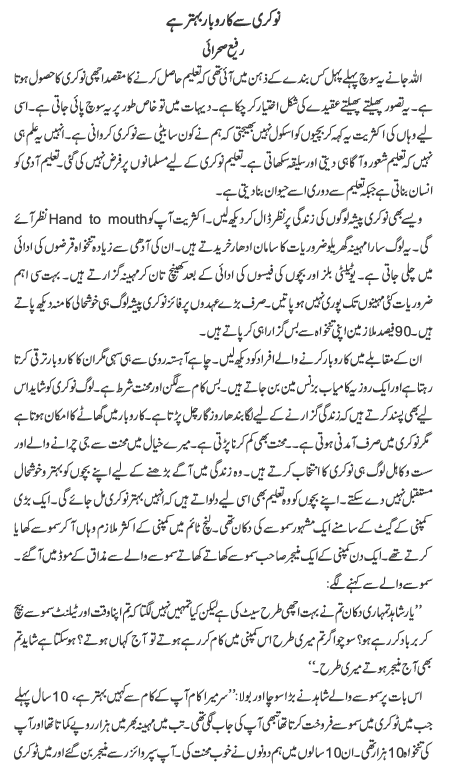 نوکری سے کاروبار بہتر ہے
رفیع صحرائی
اللہ جانے یہ سوچ پہلے پہل کس بندے کے ذہن میں آئی تھی کہ تعلیم حاصل کرنے کا مقصد اچھی نوکری کا حصول ہوتا
ہے۔ یہ تصور پھیلتے پھیلتے عقیدے کی شکل اختیار کر چکا ہے۔ دیہات میں تو خاص طور پر یہ سوچ پائی جاتی ہے۔ اسی
لیے وہاں کی اکثریت یہ کہہ کر بچیوں کو اسکول نہیں بھیجتی کہ ہم نے کون سا بیٹی سے نوکری کروانی ہے۔ انہیں یہ علم ہی
نہیں کہ تعلیم شعور و آگاہی دیتی اور سلیقہ سکھاتی ہے۔ تعلیم نوکری کے لیے مسلمانوں پر فرض نہیں کی گئی۔ تعلیم آدمی کو
انسان بناتی ہے جبکہ تعلیم سے دوری اسے حیوان بنا دیتی ہے۔
ویسے بھی نوکری پیشہ لوگوں کی زندگی پر نظر ڈال کر دیکھ لیں۔ اکثریت آپ کو Hand to mouth نظر آئے
گی۔ یہ لوگ سارا مہینہ گھریلو ضروریات کا سامان ادھار خریدتے ہیں۔ ان کی آدھی سے زیادہ تنخواہ قرضوں کی ادائی
میں چلی جاتی ہے۔ یوٹیلٹی بلز اور بچوں کی فیسوں کی ادائی کے بعد کھینچ تان کر مہینہ گزارتے ہیں۔ بہت سی اہم
ضروریات کئی مہینوں تک پوری نہیں ہو پاتیں۔ صرف بڑے عہدوں پر فائز نوکری پیشہ لوگ ہی خوشحالی کا منہ دیکھ پاتے
ہیں۔ 90 فیصد ملازمین اپنی تنخواہ سے بس گزارا ہی کر پاتے ہیں۔
ان کے مقابلے میں کاروبار کرنے والے افراد کو دیکھ لیں۔ چاہے آہستہ روی سے ہی سہی مگر ان کا کاروبار ترقی کرتا
رہتا ہے اور ایک روز یہ کامیاب بزنس مین بن جاتے ہیں۔ بس کام سے لگن اور محنت شرط ہے۔ لوگ نوکری کو شاید اس
لیے بھی پسند کرتے ہیں کہ زندگی گزارنے کے لیے لگا بندھا روزگار چل پڑتا ہے۔ کاروبار میں گھاٹے کا امکان ہوتا ہے
مگر نوکری میں صرف آمدنی ہوتی ہے۔۔ محنت بھی کم کرنا پڑتی ہے۔ میرے خیال میں محنت سے جی چرانے والے اور
سست و کاہل لوگ ہی نوکری کا انتخاب کرتے ہیں۔ وہ زندگی میں آگے بڑھنے کے لیے اپنے بچوں کو بہتر و خوشحال
مستقبل نہیں دے سکتے۔ اپنے بچوں کو وہ تعلیم بھی اسی لیے دلواتے ہیں کہ انہیں بہتر نوکری مل جائے گی۔ ایک بڑی
کمپنی کے گیٹ کے سامنے ایک مشہور سموسے کی دکان تھی۔ لنچ ٹائم میں کمپنی کے اکثر ملازم وہاں آکر سموسے کھایا
کرتے تھے۔ ایک دن کمپنی کے ایک منیجر صاحب سموسے کھاتے کھاتے سموسے والے سے مذاق کے موڈ میں آگئے۔
سموسے والے سے کہنے لگے:
’’یار شاہد تمہاری دکان تم نے بہت اچھی طرح سیٹ کی ہے لیکن کیا تمہیں نہیں لگتا کہ تم اپنا وقت اور ٹیلنٹ سموسے بیچ
کر برباد کر رہے ہو؟ سوچو اگر تم میری طرح اس کمپنی میں کام کر رہے ہوتے تو آج کہاں ہوتے؟ ہو سکتا ہے شاید تم
بھی آج منیجر ہوتے میری طرح۔‘‘
اس بات پر سموسے والے شاہد نے بڑا سوچا اور بولا: ’’سر میرا کام آپ کے کام سے کہیں بہتر ہے، 10 سال پہلے
جب میں نوکری میں سموسے فروخت کرتا تھا تبھی آپ کی جاب لگی تھی۔ تب میں مہینہ بھر میں ہزار روپے کماتا تھا اور آپ
کی تنخواہ 10 ہزار تھی۔ ان 10 سالوں میں ہم دونوں نے خوب محنت کی۔ آپ سپروائزر سے منیجر بن گئے اور میں ٹوکری